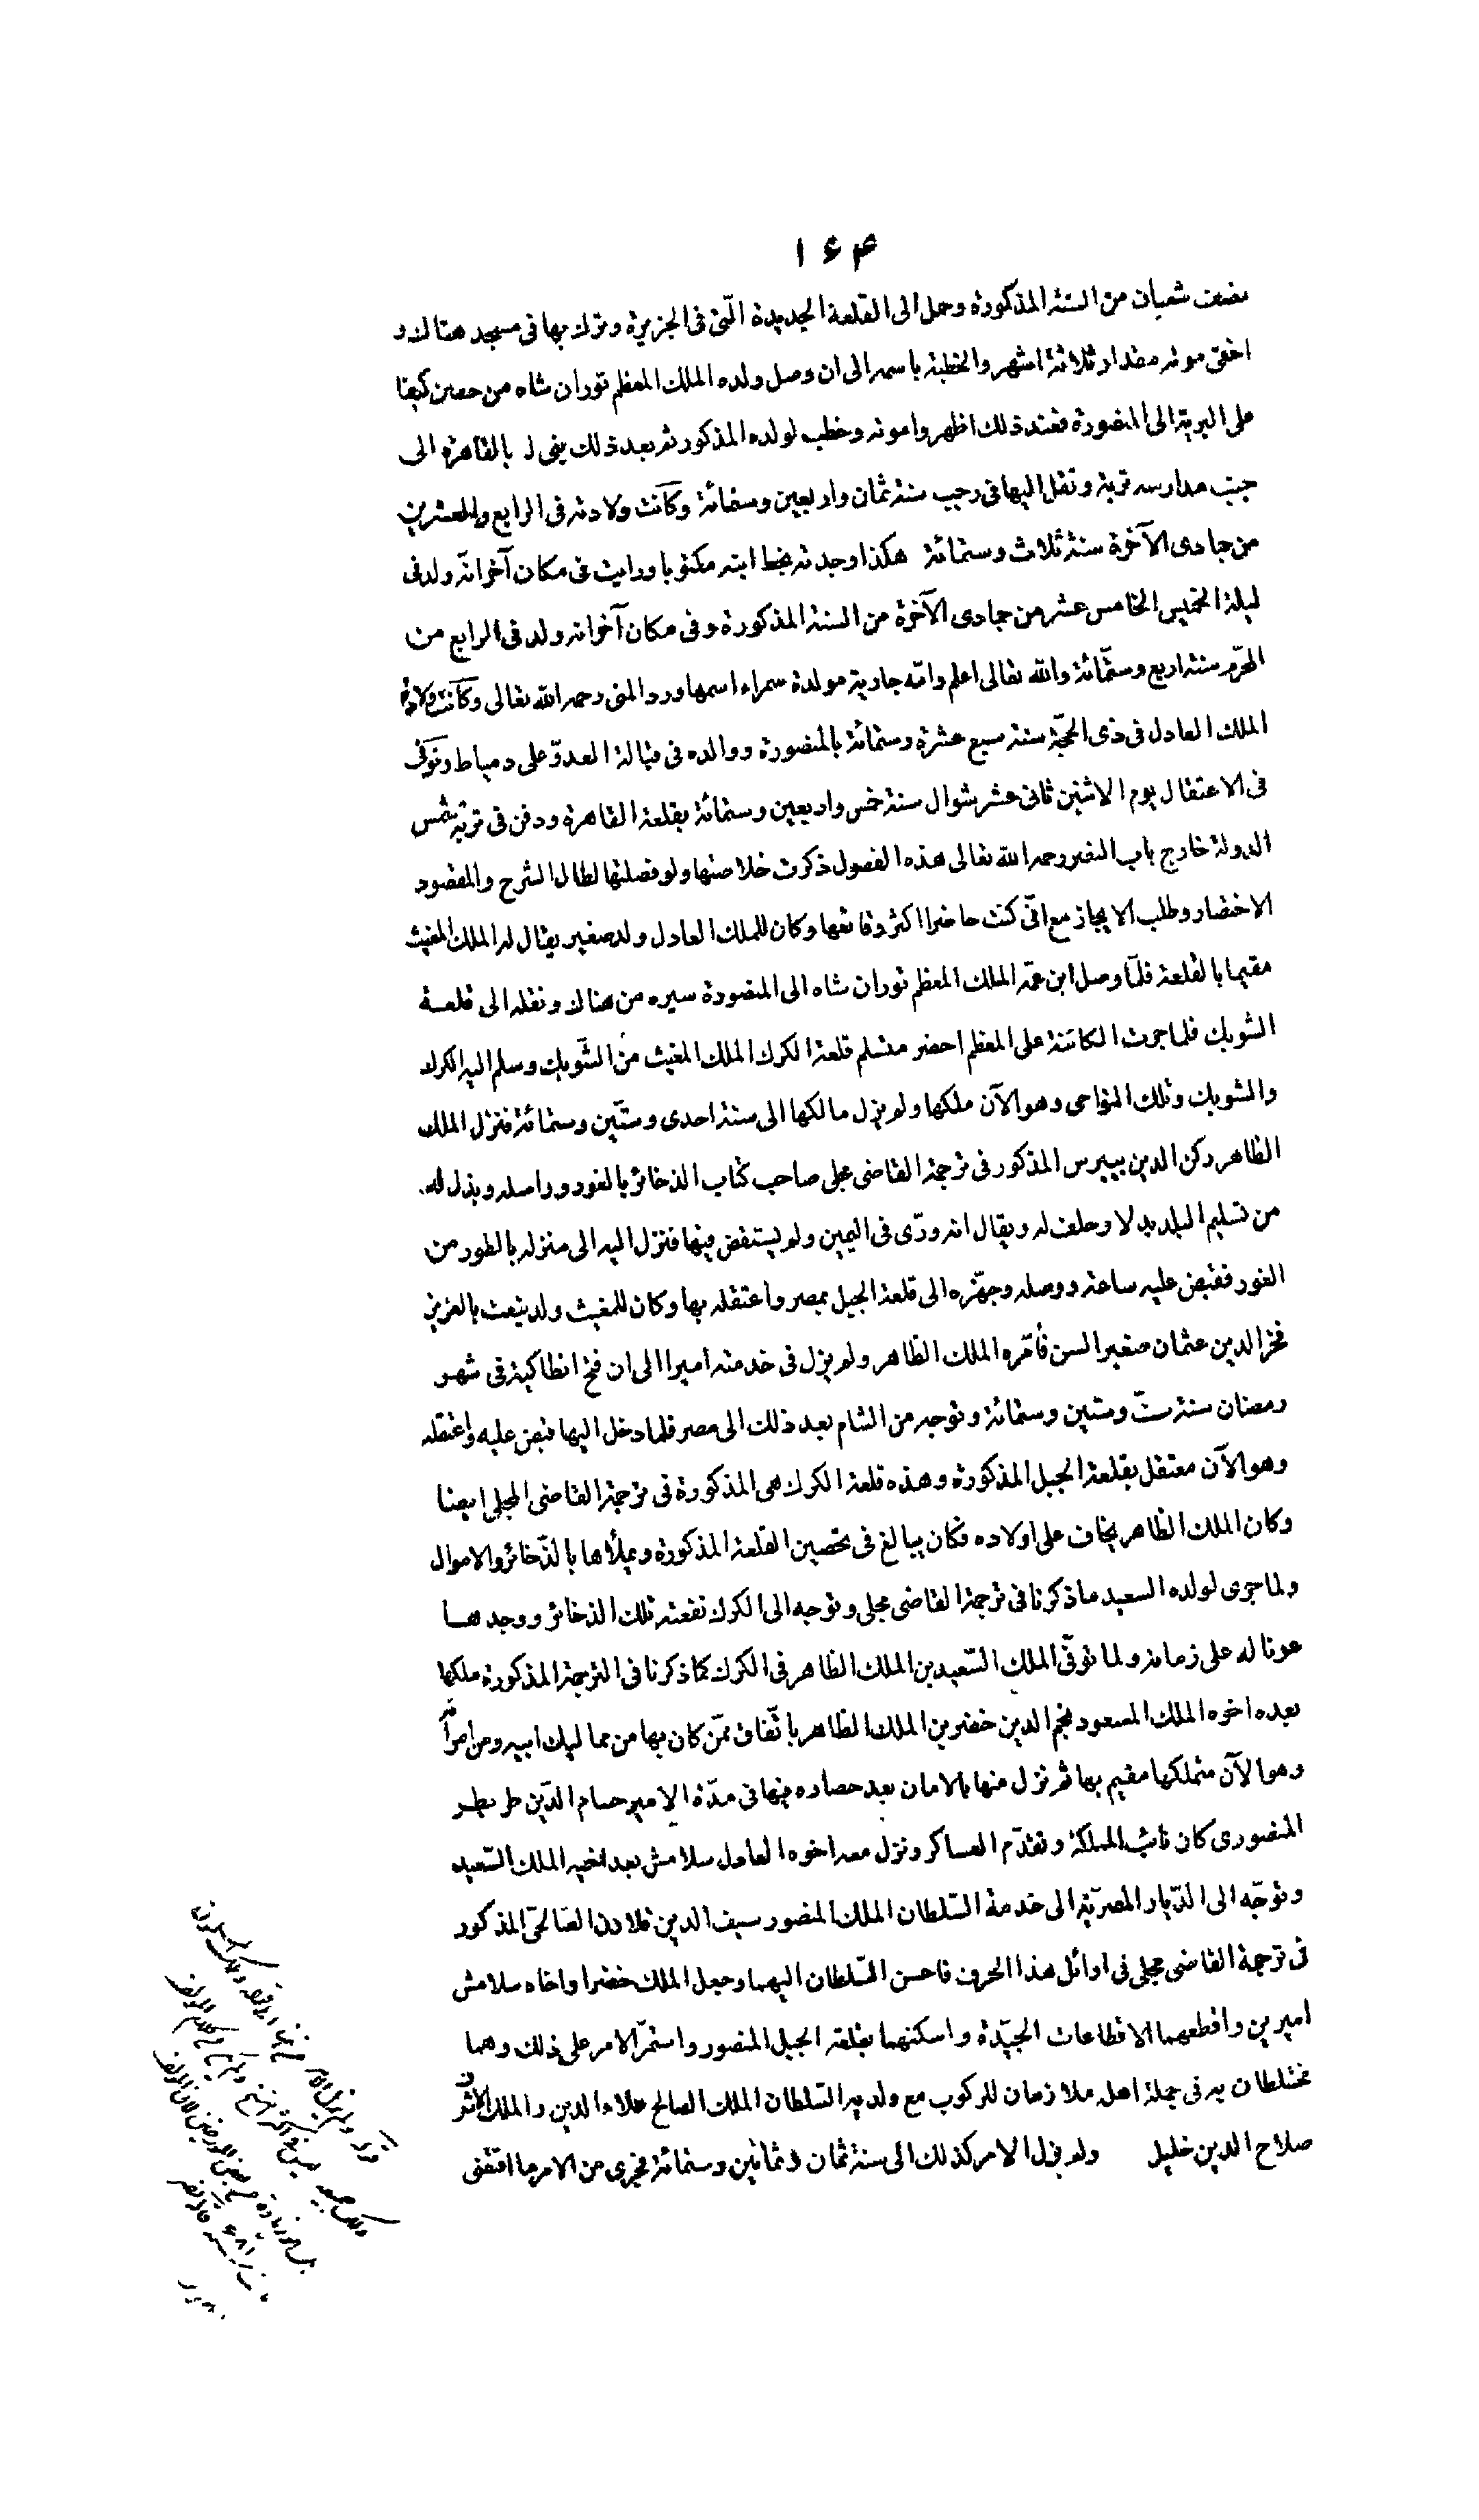 ١٤٣
نصف شعبان من السنة المذكورة وحمل الى القلعة الجديدة الّتى فى الجزيرة وترك بها فى مسجد هناك و
اخفى موته مقدار ثلاثة اشهر والخطبة باسمه الى ان وصل ولده الملك المعظم توران شاه من حصن كيفا
على البرية الى المنصورة فعند ذلك اظهروا موته وخطب لولده المذكور ثم بعد ذلك بنى له بالقاهرة الى
جنب مدارسه تربة ونقل اليها فى رجب سنة ثمان واربعين وستمائة وكانت ولادته فى الرابع والعشرين
من جمادى الآخرة سنة ثلاث وستمائة هكذا وجدته بخط ابنه مكتوبا ورايت فى مكان آخر انّه ولد فى
ليلة الخميس الخامس عشر من جمادى الآخرة من السنة المذكورة وفى مكان آخر انه ولد فى الرابع من
المحرّم سنة اربع وستّمائة والله تعالى اعلم وامّه جارية مولدة سمراء اسمها ورد المنى رحمه الله تعالى وكانت ولادة
الملك العادل فى ذى الحجّة سنة سبع عشرة وستمائة بالمنصورة ووالده فى قبالة العدوّ على دمياط وتوفى
فى الاعتقال يوم الاثنين ثانى عشر شوال سنة خمس واربعين وستمائة بقلعة القاهرة ودفن فى تربة شمس
الدولة خارج باب النصر رحمه الله تعالى هذه الفصول ذكرت خلاصتها ولو فصلتها لطال الشرح والمقصود
الاختصار وطلب الايجاز مع انّى كنت حاضرا اكثر وقائعها وكان للملك العادل ولد صغير يقال له الملك المغيث
مقيما بالقلعة فلمّا وصل ابن عمّه الملك المعظم توران شاه الى المنصورة سيره من هناك ونقله الى قلعة
الشوبك فلما جرت الكائنة على المعظم احضر متسلم قلعة الكرك الملك المغيث من الشّوبك وسلم اليه الكرك
والشوبك وتلك النواحى وهو الآن ملكها ولم يزل مالكها الى سنة احدى وستّين وستمائة فنزل الملك
الظاهر ركن الدين بيبرس المذكور فى ترجمة القاضى مجلى صاحب كتاب الذخائر بالغور وراسله وبذل له
من تسليم البلد بدلا وحلف له ويقال انه ورّى فى اليمين ولم يستقص فيها فنزل اليه الى منزله بالطور من
الغور فقبض عليه ساعة ووصله وجهّزه الى قلعة الجبل بمصر واعتقله بها وكان للمغيث ولد ينعت بالعزيز
فخر الدين عثمان صغير السن فأمّره الملك الظاهر ولم يزل فى خدمته اميرا الى ان فتح انطاكية فى شهر
رمضان سنة ستّ وستين وستمائة وتوجه من الشام بعد ذلك الى مصر فلما دخل اليها قبض عليه واعتقله
وهو الآن معتقل بقلعة الجبل المذكورة وهذه قلعة الكرك هى المذكورة فى ترجمة القاضى المجلى ايضا
وكان الملك الظاهر يخاف على اولاده فكان يبالغ فى تحصين القلعة المذكورة ويملأها بالذّخائر والاموال
ولما جرى لولده السعيد ما ذكرنا فى ترجمة القاضى مجلى وتوجه الى الكرك نفعته تلك الذخائر ووجدها
عونا له على زمانه ولما توفّى الملك السّعيد بن الملك الظاهر فى الكرك كما ذكرنا فى الترجمة المذكورة ملكها
بعده اخوه الملك المسعود نجم الدين خضر بن الملك الظاهر باتّفاق ممّن كان بها من مماليك ابيه ومن امرائه
وهو الآن متملكها مقيم بها ثم نزل منها بالامان بعد حصاره فيها فى مدّة الامير حسام الدّين طرنطر
المنصورى كان نائب المملكة وتقدّم العساكر ونزل معه اخوه العادل سلامش بعد اخيه الملك السّعيد
وتوجّه الى الدّيار المصريّة الى خدمة السّلطان الملك المنصور سيف الدين قلاون الصّالحىّ المذكور
فى ترجمة القاضى مجلى فى اوائل هذا الحرف فاحسن السّلطان اليهما وجعل الملك خضرا واخاه سلامش
اميرين واقطعهما الاقطاعات الجيّدة واسكنهما بقلعة الجبل المنصور واستمرّ الامر على ذلك وهما
مختلطان به فى جملة اهله ملازمان للركوب مع ولديه السّلطان الملك الصالح علاء الدين والملك الاشرف
صلاح الدين خليل ولم يزل الامر كذلك الى سنة ثمان وثمانين وستمائة فجرى من الامر ما اقتضى